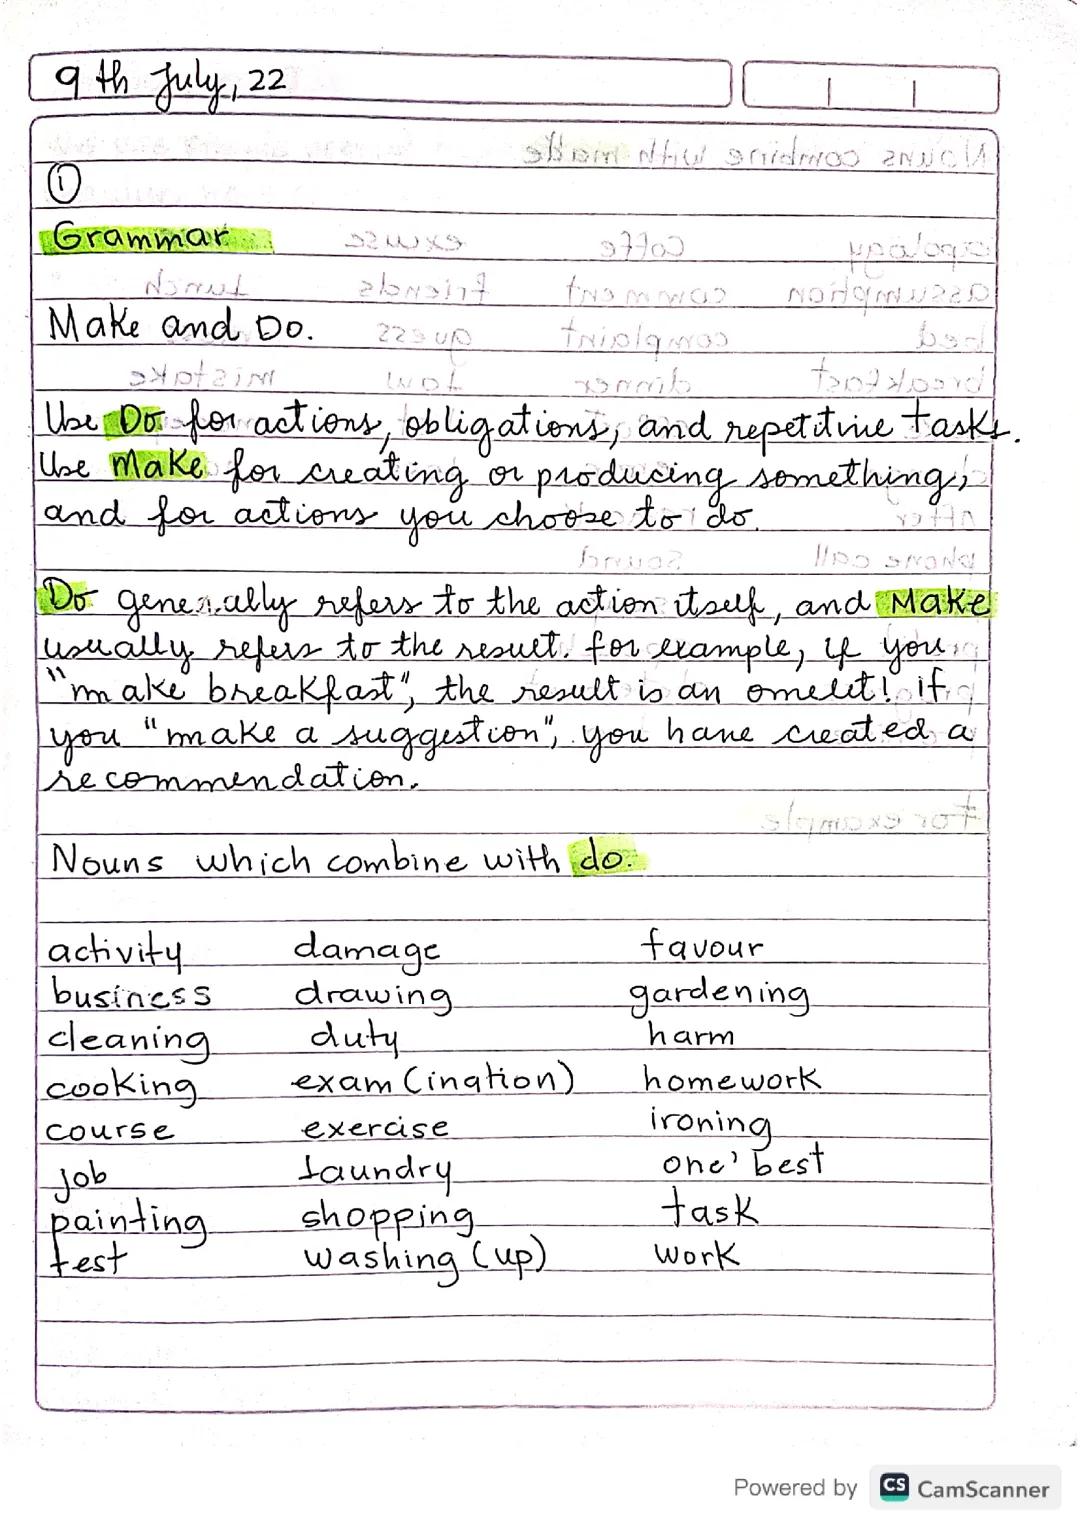 9th July, 22
①
Grammar
Make and Do.
Use Do for actions, obligations, and repetitive tasks.
Use Make for creating or producing something,
and for actions you choose to do.
Do generally refers to the action itself, and Make
usually refers to the result. for example, if you
"make breakfast", the result is an omelet! if
you "make a suggestion", you have created a
recommendation.
Nouns which combine with do.
activity damage favour
business drawing gardening
cleaning duty harm
cooking exam (ination) homework
course exercise ironing
job laundry one' best
painting shopping task
test washing (up) work
Powered by CS CamScanner